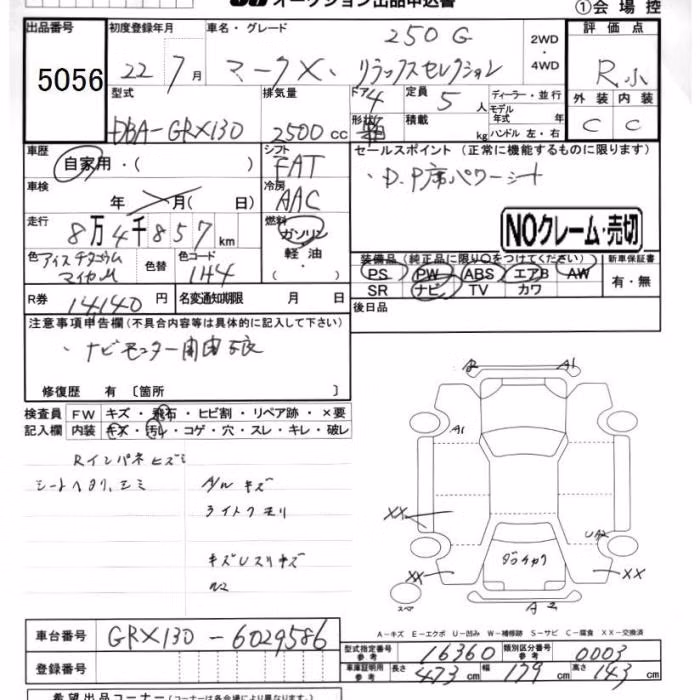 オークション出品申込書
①会場控
出品番号 初度登録年月 車名・グレード 2WD・4WD 評価点
5056 22 7月 250G マークX リラックスセレクション R小
型式 排気量 ドア 4 定員 5人 ディーラー・並行 外装 内装
DBA-GRX130 2500cc 形状 積載 kg モデル年式 年 ハンドル 左・右 C C
車歴 自家用・( ) シフト FAT セールスポイント (正常に機能するものに限ります)
車検 年 月( 日) 冷房 AAC ・D.P席パワーシート
走行 8万4千857km 燃料 ガソリン 軽油・( NOクレーム・売切
色 アイスチタニウムマイカM 色替 色コード 1H4
装備品 (純正品に限り○をつけてください) 新車保証書
PS PW ABS エアB AW 有・無
SR ナビ TV カワ
R券 14140円 名変通知期限 月 日 後日品
注意事項申告欄(不具合内容等は具体的に記入して下さい)
・ナビモニター開閉
修復歴 有〔箇所 〕
検査員 FW キズ・飛石・ヒビ割・リペア跡・×要
記入欄 内装 キズ・汚れ・コゲ・穴・スレ・キレ・破レ
Rインパネヒズミ
シートヘタリ、シミ アルミキズ
ライトクモリ
キズUスリキズ
R A1
A1
XX UA2
XX XX
スペア A2
A-キズ E-エクボ U-凹み W-補修跡 S-サビ C-腐食 XX-交換済
車台番号 GRX130-6029586
型式指定番号 参考 16360 類別区分番号 参考 0003
登録番号 車庫証明用 参考 長さ 473cm 幅 179cm 高さ 143cm
希望出品コーナー (コーナーは各会場により異なります)